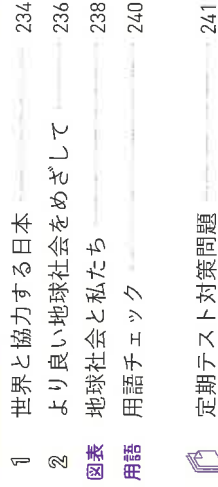 1 世界と協力する日本 234
2 より良い地球社会をめざして 236
図表 地球社会と私たち 238
用語 用語チェック 240
定期テスト対策問題 241